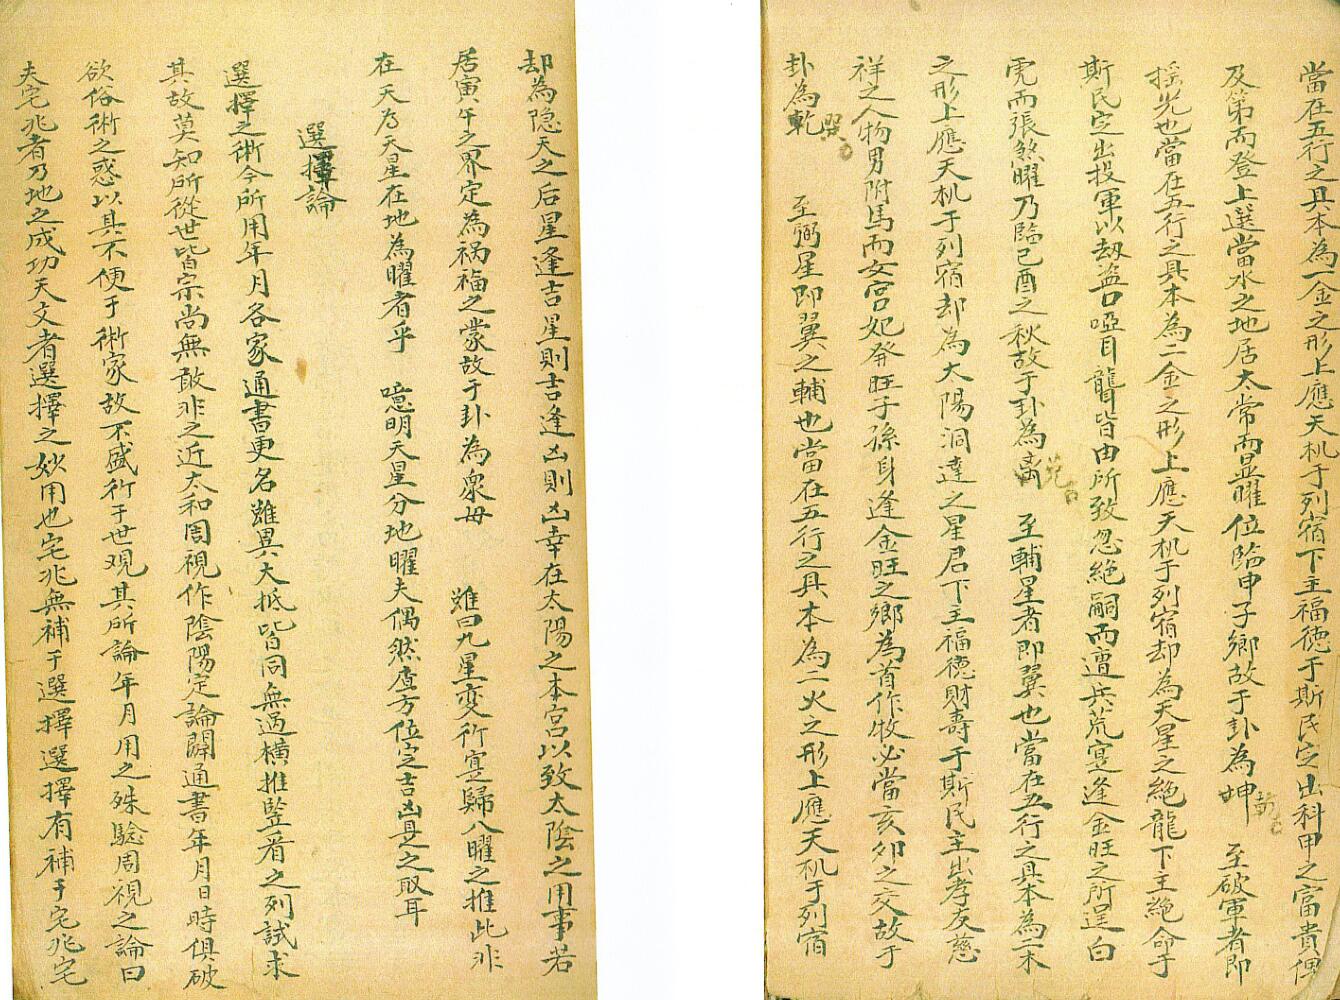 當在五行之具本為一金之形上應天机于列宿下主福德于斯民定出科甲之富貴俚
及第而登上選當水之地居太常而显曜位臨申子鄉故于卦為坤 至破軍者即
摇光也當在五行之具本為二金之形上應天机于列宿却為天星之絕龍下主絕命于
斯民定出投軍以劫盜口啞目聾皆由所致忽絕嗣而遭兵荒寔逢金旺之所逞白
虎而張煞曜乃臨已酉之秋故于卦為离 至輔星者即翼也當在五行之具本為二木
之形上應天机于列宿却為大陽洞達之星君下主福德財壽于斯民主出孝友慈
祥之人物男附馬而女宫妃發旺子孫身逢金旺之鄉為首作牧必當亥卯之交故于
卦為乾 至弼星即翼之輔也當在五行之具本為二火之形上應天机于列宿
却為隐天之后星逢吉星則吉逢凶則凶幸在太陽之本宫以致太陰之用事若
居寅午之界定為禍福之蒙故于卦為衆母 雖曰九星变行寔歸八曜之推此非
在天為天星在地為曜者乎 噫明天星分地曜夫偶然查方位定吉凶是之取耳
選擇論
選擇之術今所用年月各家通書更名雖異大抵皆同無過横推竪看之列試求
其故莫知所從世皆宗尚無敢非之近太和周視作陰陽定論闢通書年月日時俱破
欲俗術之惑以其不便于術家故不盛行于世观其所論年月用之殊驗周視之論曰
夫宅兆者乃地之成功天文者選擇之妙用也宅兆無補于選擇選擇有補于宅兆宅